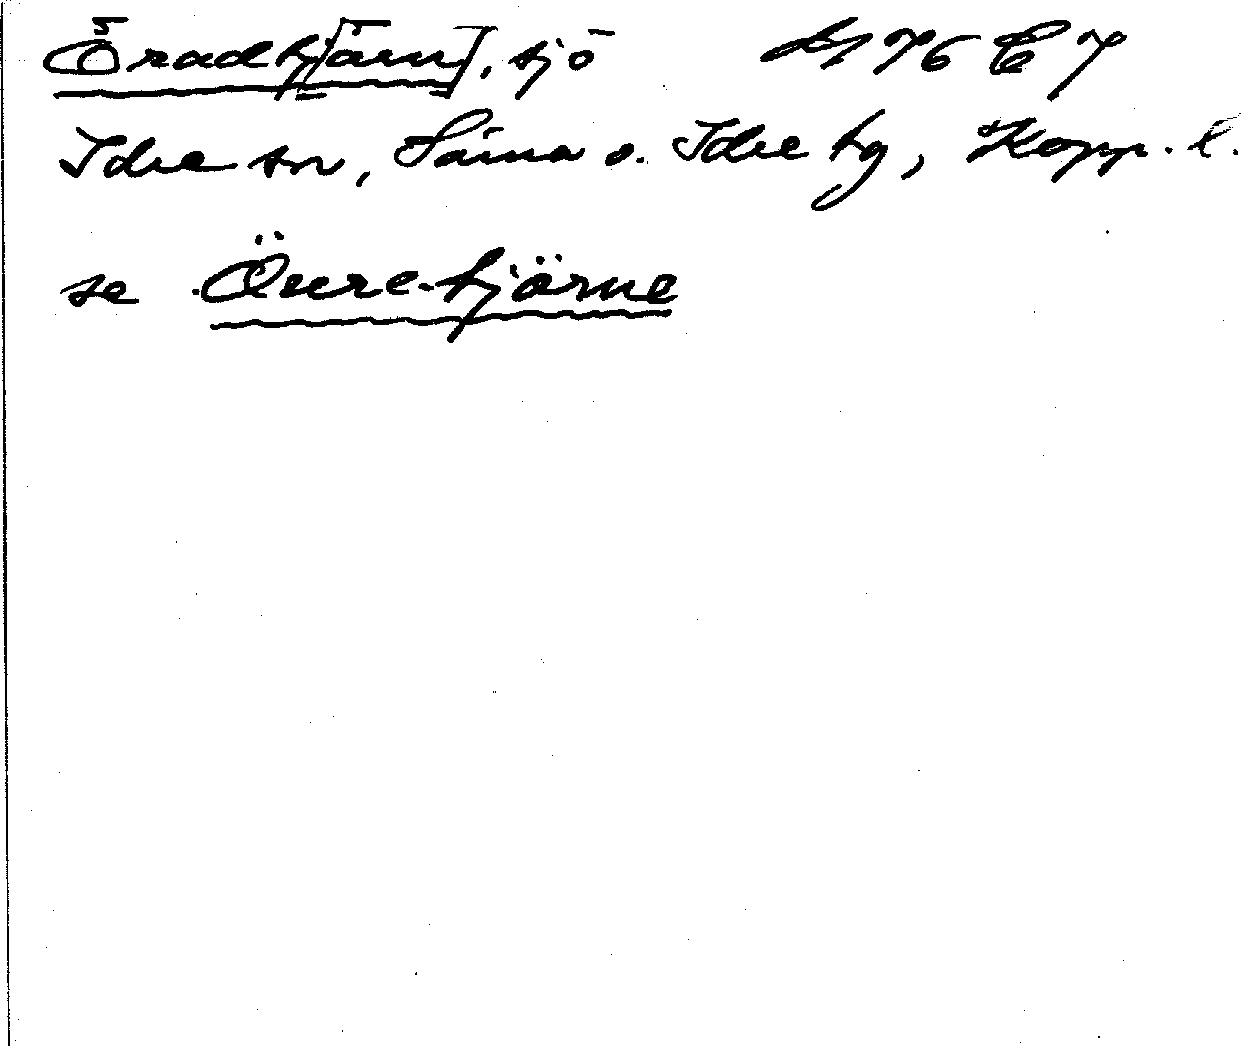 Öradtj[ärn], sjö 476 C 7
Idre sn, Särna o. Idre tg, Kopp. l.
se Övre-tjärne